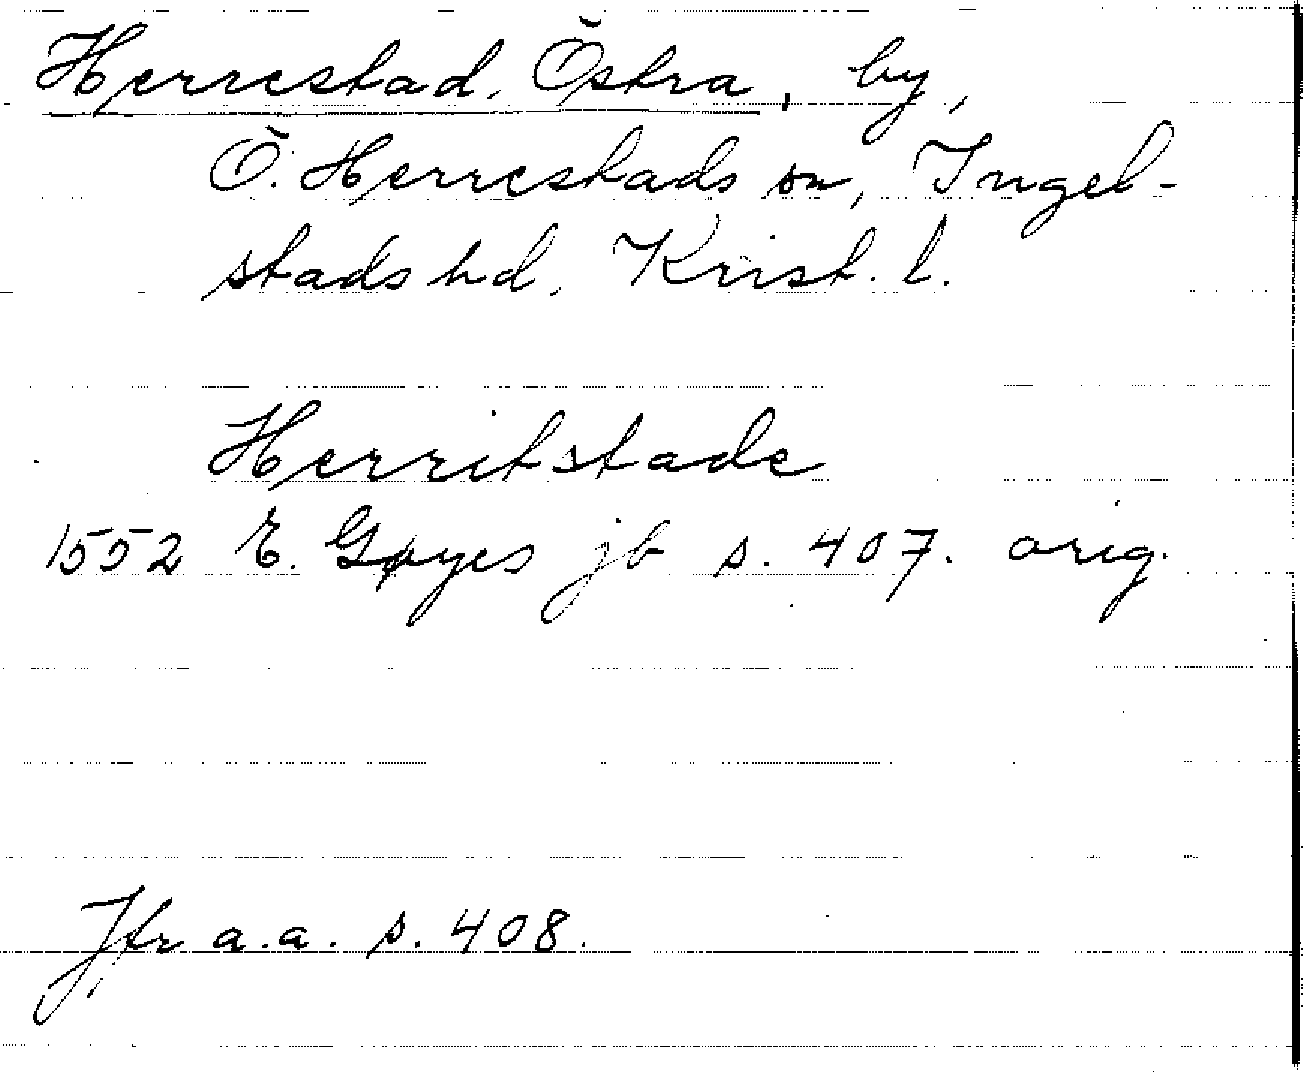 Herrestad, Östra, by,
Ö. Herrestads sn, Ingel-
stads hd, Krist. l.
Herritstade
1552 E. Gøyes jb s. 407. orig.
Jfr a.a. s. 408.